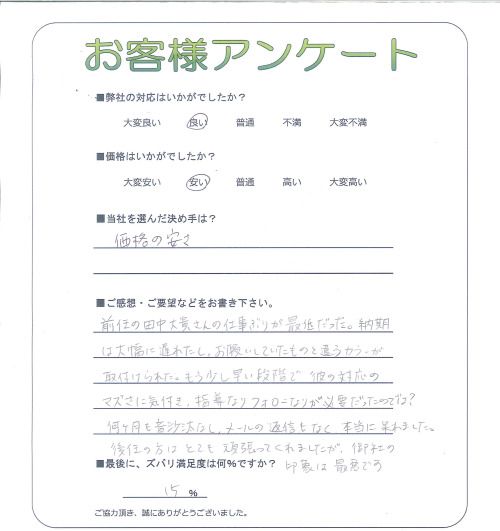 お客様アンケート
■弊社の対応はいかがでしたか？
大変良い 良い 普通 不満 大変不満
■価格はいかがでしたか？
大変安い 安い 普通 高い 大変高い
■当社を選んだ決め手は？
価格の安さ
■ご感想・ご要望などをお書き下さい。
前任の田中大貴さんの仕事ぶりが最低だった。納期
は大幅に遅れたし、お願いしていたものと違うカラーが
取付けられた。もう少し早い段階で彼の対応の
マズさに気付き、指導なりフォローなりが必要だったのでは？
何ヶ月も音沙汰なし、メールの返信もなく本当に呆れました。
後任の方はとても頑張ってくれましたが、御社の
印象は最悪です
■最後に、ズバリ満足度は何%ですか？
15 %
ご協力頂き、誠にありがとうございました。